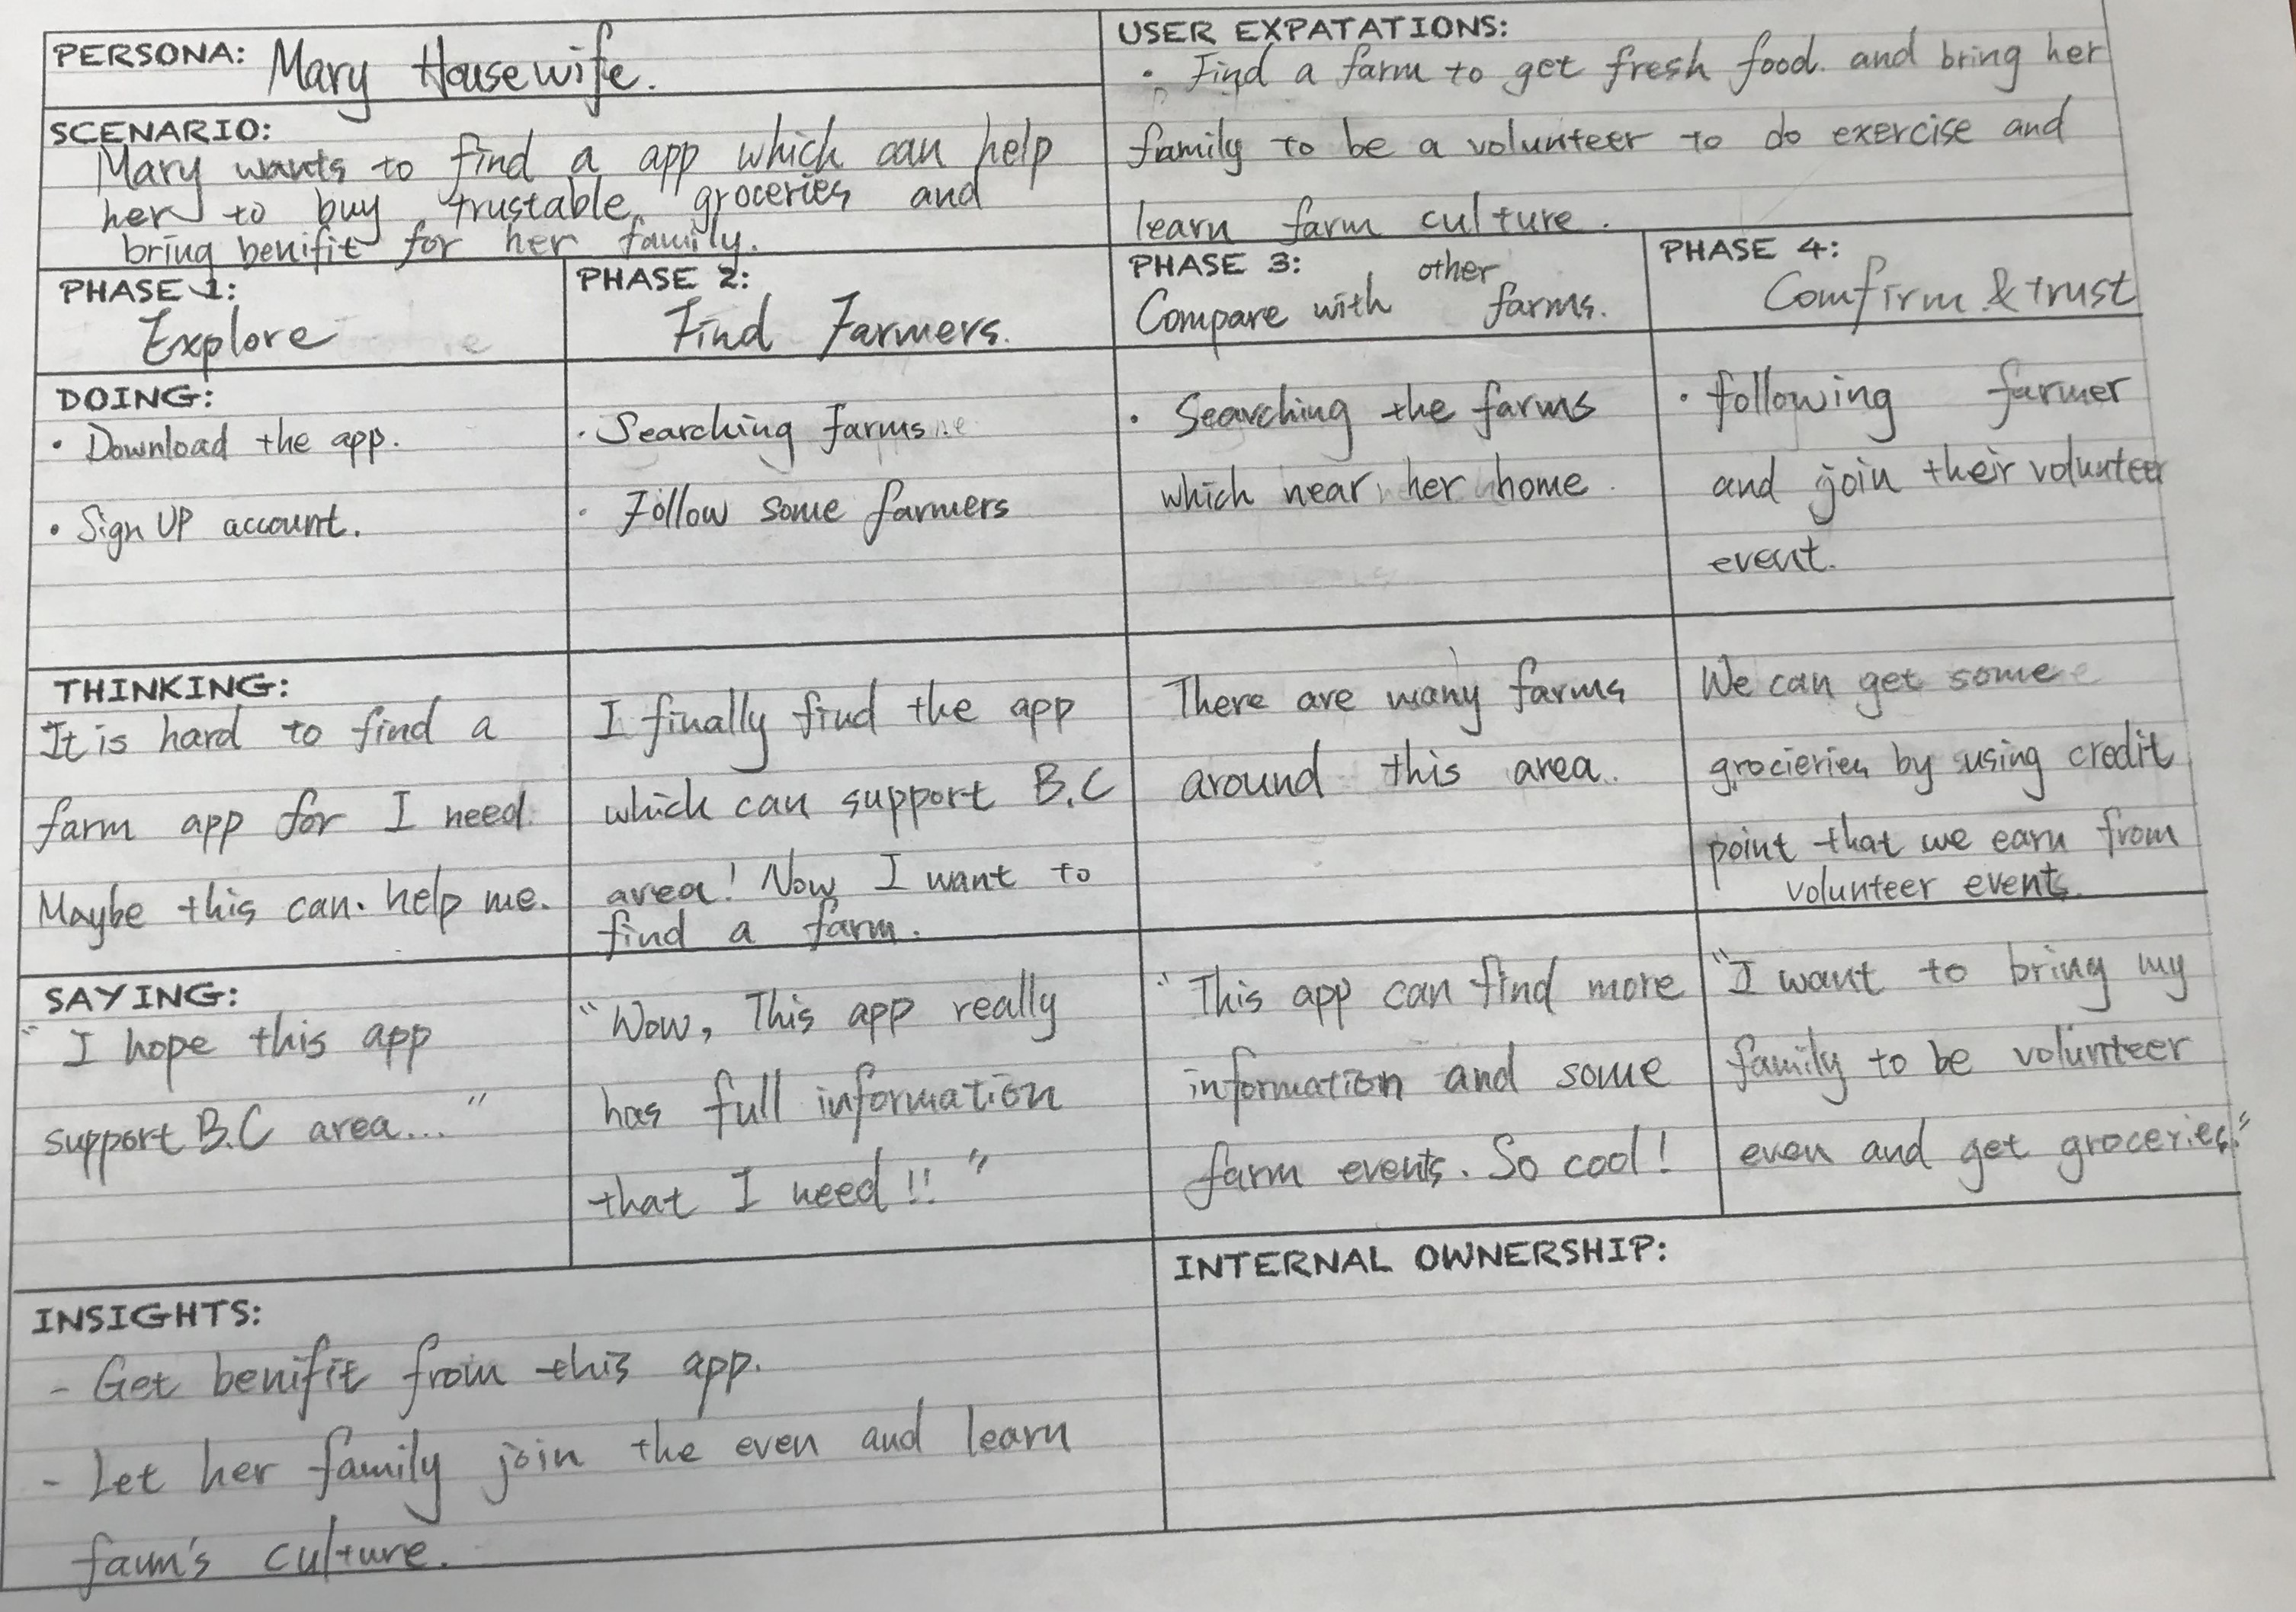 PERSONA: Mary Housewife.
SCENARIO:
Mary wants to find a app which can help
her to buy trustable groceries and
bring benifit for her family.
USER EXPATATIONS:
• Find a farm to get fresh food. and bring her
family to be a volunteer to do exercise and
learn farm culture.
PHASE 1:
Explore
PHASE 2:
Find Farmers.
PHASE 3: other
Compare with farms.
PHASE 4:
Comfirm & trust
DOING:
• Download the app.
• Sign UP account.
• Searching farms
• Follow some farmers
• Searching the farms
which near her home.
• following farmer
and join their volunteer
event.
THINKING:
It is hard to find a
farm app for I need.
Maybe this can. help me.
I finally find the app
which can support B.C
area! Now I want to
find a farm.
There are many farms
around this area.
We can get some
grocieries by using credit
point that we earn from
volunteer events.
SAYING:
"I hope this app
support B.C area..."
"Wow, This app really
has full information
that I need!!"
"This app can find more
information and some
farm events. So cool!
"I want to bring my
family to be volunteer
even and get groceries."
INSIGHTS:
- Get benifit from this app.
- Let her family join the even and learn
farm's culture.
INTERNAL OWNERSHIP: